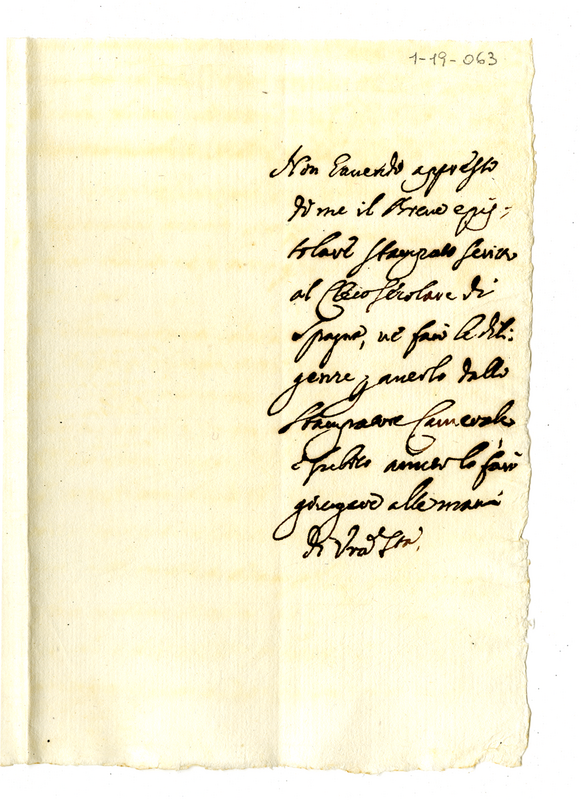 1-19-063
Non havendo appresso
di me il Breve epis-
tolare stampato scritto
al Clero secolare di
Spagna, ne farò le dili:
genze p averlo dallo
Stampatore Camerale
e subito avuto lo farò
giungere alle mani
di Vra Sta.